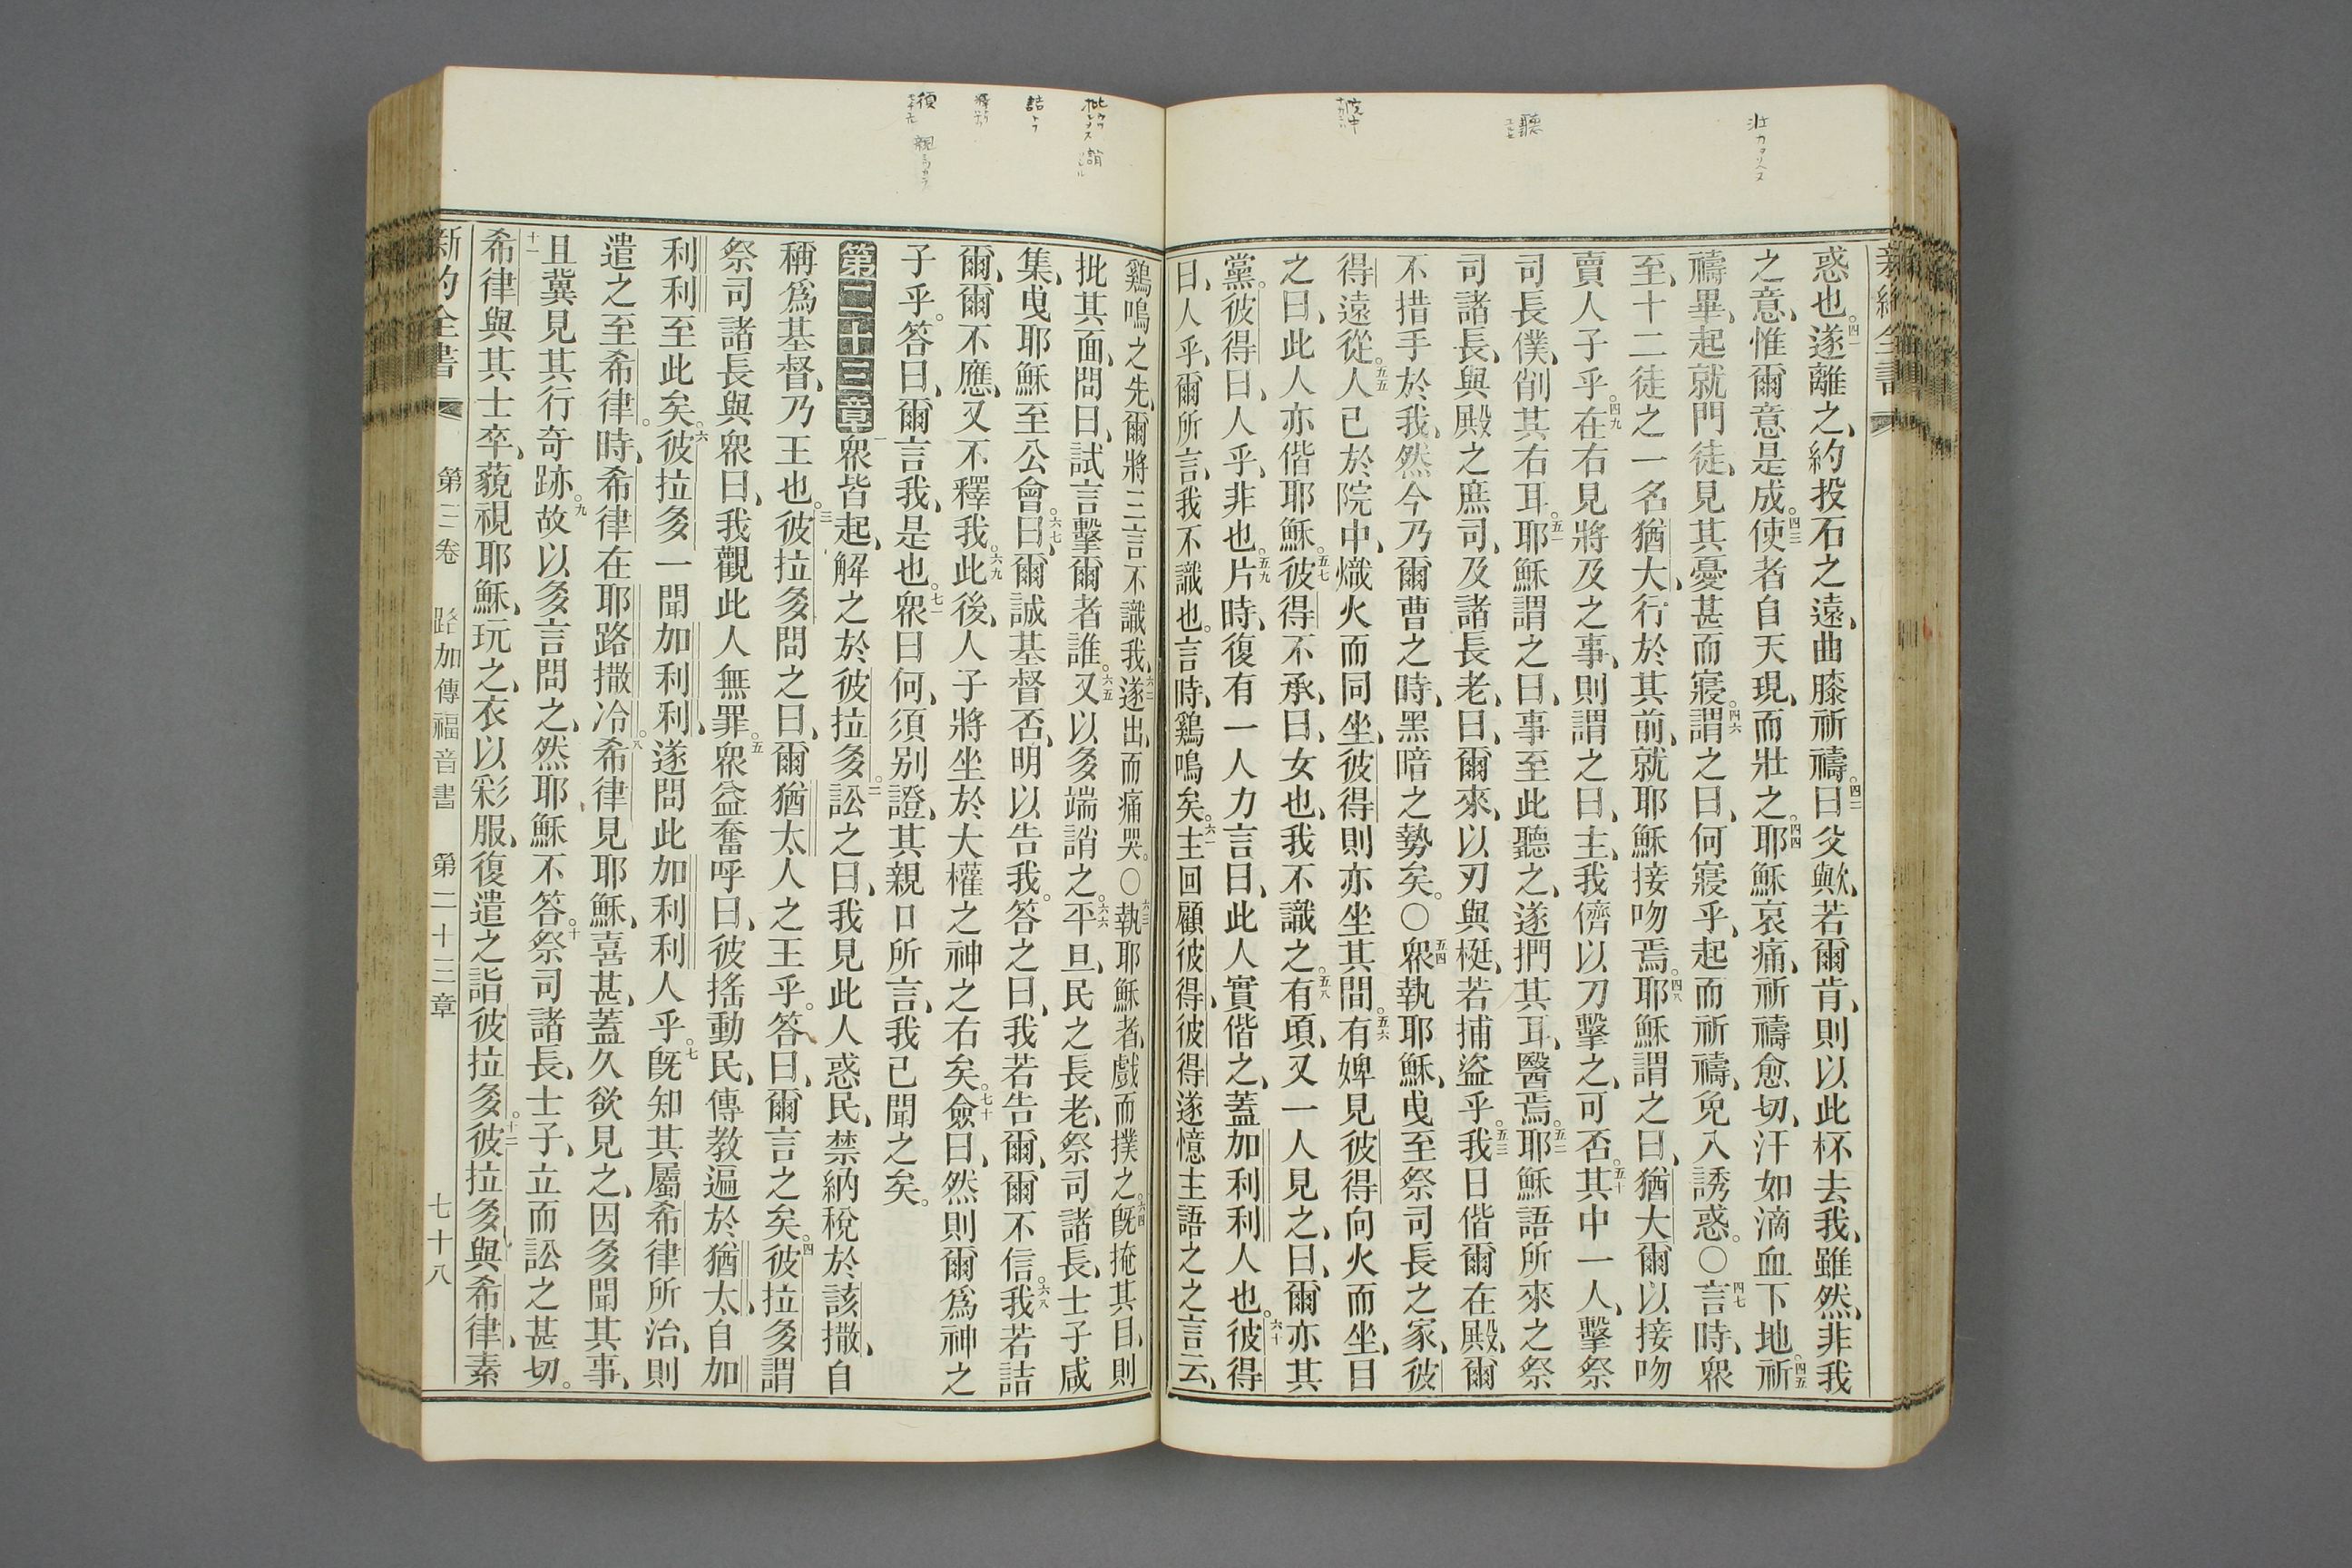 壯
聽
院中
惑也。四一遂離之、約投石之遠、曲膝祈禱。四二曰父歟、若爾肯、則以此杯去我、雖然、非我
之意、惟爾意是成。四三使者自天現、而壯之。四四耶穌哀痛、祈禱愈切、汗如滴血下地。四五祈
禱畢、起就門徒、見其憂甚而寢。四六謂之曰、何寢乎、起而祈禱、免入誘惑。○四七言時、衆
至、十二徒之一名猶大、行於其前、就耶穌接吻焉。四八耶穌謂之曰、猶大爾以接吻
賣人子乎。四九在右見將及之事、則謂之曰、主、我儕以刀擊之、可否。五十其中一人、擊祭
司長僕、削其右耳。五一耶穌謂之曰、事至此聽之、遂捫其耳、醫焉。五二耶穌語所來之祭
司諸長、與殿之庶司、及諸長老、曰、爾來、以刃與梃、若捕盜乎。五三我日偕爾在殿、爾
不措手於我、然今乃爾曹之時、黑暗之勢矣。○五四衆執耶穌、曳至祭司長之家、彼
得遠從。五五人已於院中、熾火而同坐、彼得則亦坐其間。五六有婢見彼得向火而坐、目
之曰、此人亦偕耶穌。五七彼得不承、曰、女也、我不識之。五八有頃、又一人見之、曰、爾亦其
黨。彼得曰、人乎、非也。五九片時、復有一人力言曰、此人實偕之、蓋加利利人也。六十彼得
曰、人乎、爾所言、我不識也。言時、鷄鳴矣。六一主回顧彼得、彼得遂憶主語之之言云、
新約全書
批 誚
詰
釋
須 親
鷄鳴之先、爾將三言不識我、六二遂出、而痛哭。○六三執耶穌者、戲而撲之。六四旣掩其目、則
批其面、問曰、試言擊爾者誰。六五又以多端誚之。六六平旦、民之長老、祭司諸長、士子咸
集、曳耶穌至公會。六七曰、爾誠基督否、明以告我。答之曰、我若告爾、爾不信。六八我若詰
爾、爾不應、又不釋我。六九此後、人子將坐於大權之神之右矣。七十僉曰、然則爾爲神之
子乎。答曰、爾言我、是也。七一衆曰何、須別證、其親口所言、我已聞之矣。
第二十三章一衆皆起、解之於彼拉多。二訟之曰、我見此人惑民、禁納稅於該撒、自
稱爲基督、乃王也。三彼拉多問之曰、爾猶太人之王乎。答曰、爾言之矣。四彼拉多謂
祭司諸長與衆曰、我觀此人無罪。五衆益奮呼曰、彼搖動民、傳教遍於猶太、自加
利利至此矣。六彼拉多一聞加利利、遂問此加利利人乎。七旣知其屬希律所治、則
遣之至希律。時、希律在耶路撒冷。八希律見耶穌、喜甚、蓋久欲見之、因多聞其事、
且冀見其行奇跡。九故以多言問之、然耶穌不答。十祭司諸長、士子、立而訟之甚切。
十一希律與其士卒、藐視耶穌、玩之、衣以彩服、復遣之詣彼拉多。十二彼拉多與希律、素
新約全書 第三卷 路加傳福音書 第二十三章 七十八